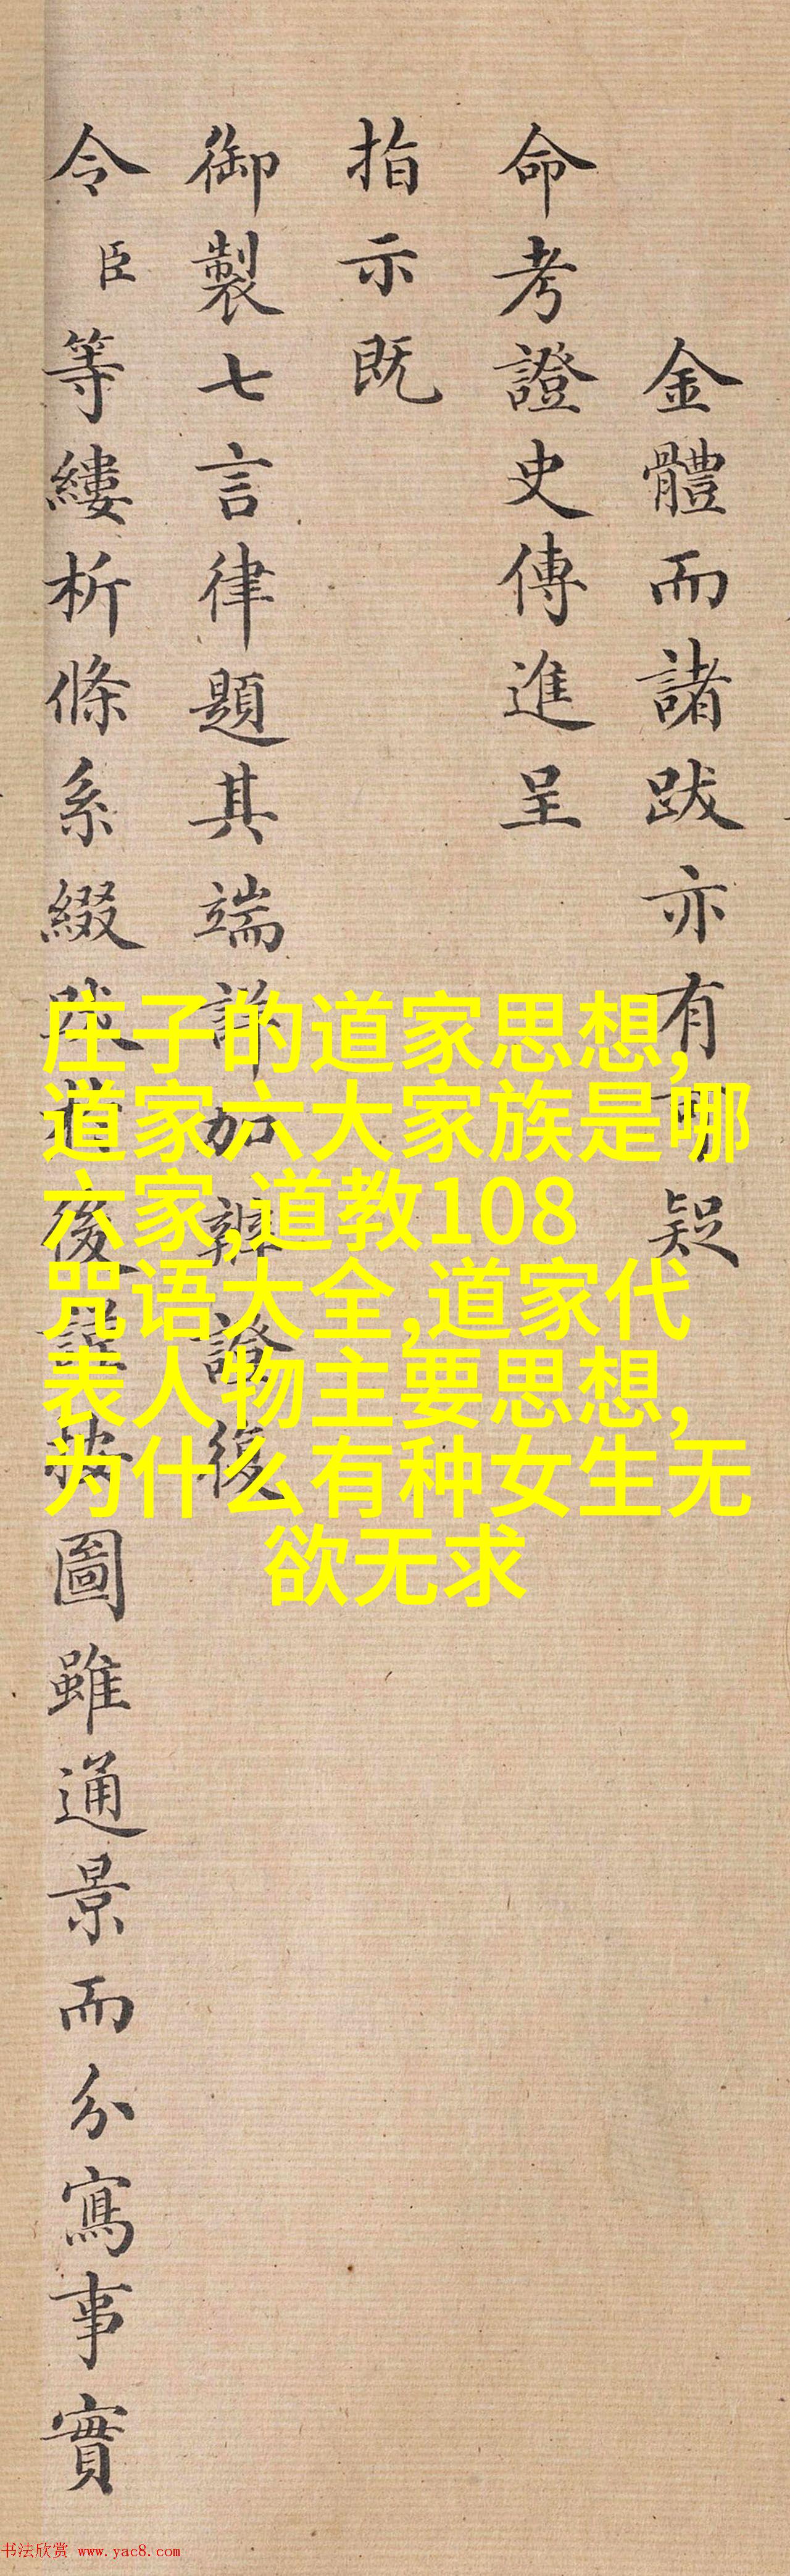 金體而諸跋亦有可疑
命考證史傳進呈
指示既
御製七言律題其端詳加辨證復
令臣等縷析條系綴跋於後謹按圖雖通景而分寫事實
庄子的道家思想,
道家六大家族是哪
六家,道教108
咒语大全,道家代
表人物主要思想,
为什么有种女生无
欲无求
书法欣赏 www.yac8.com